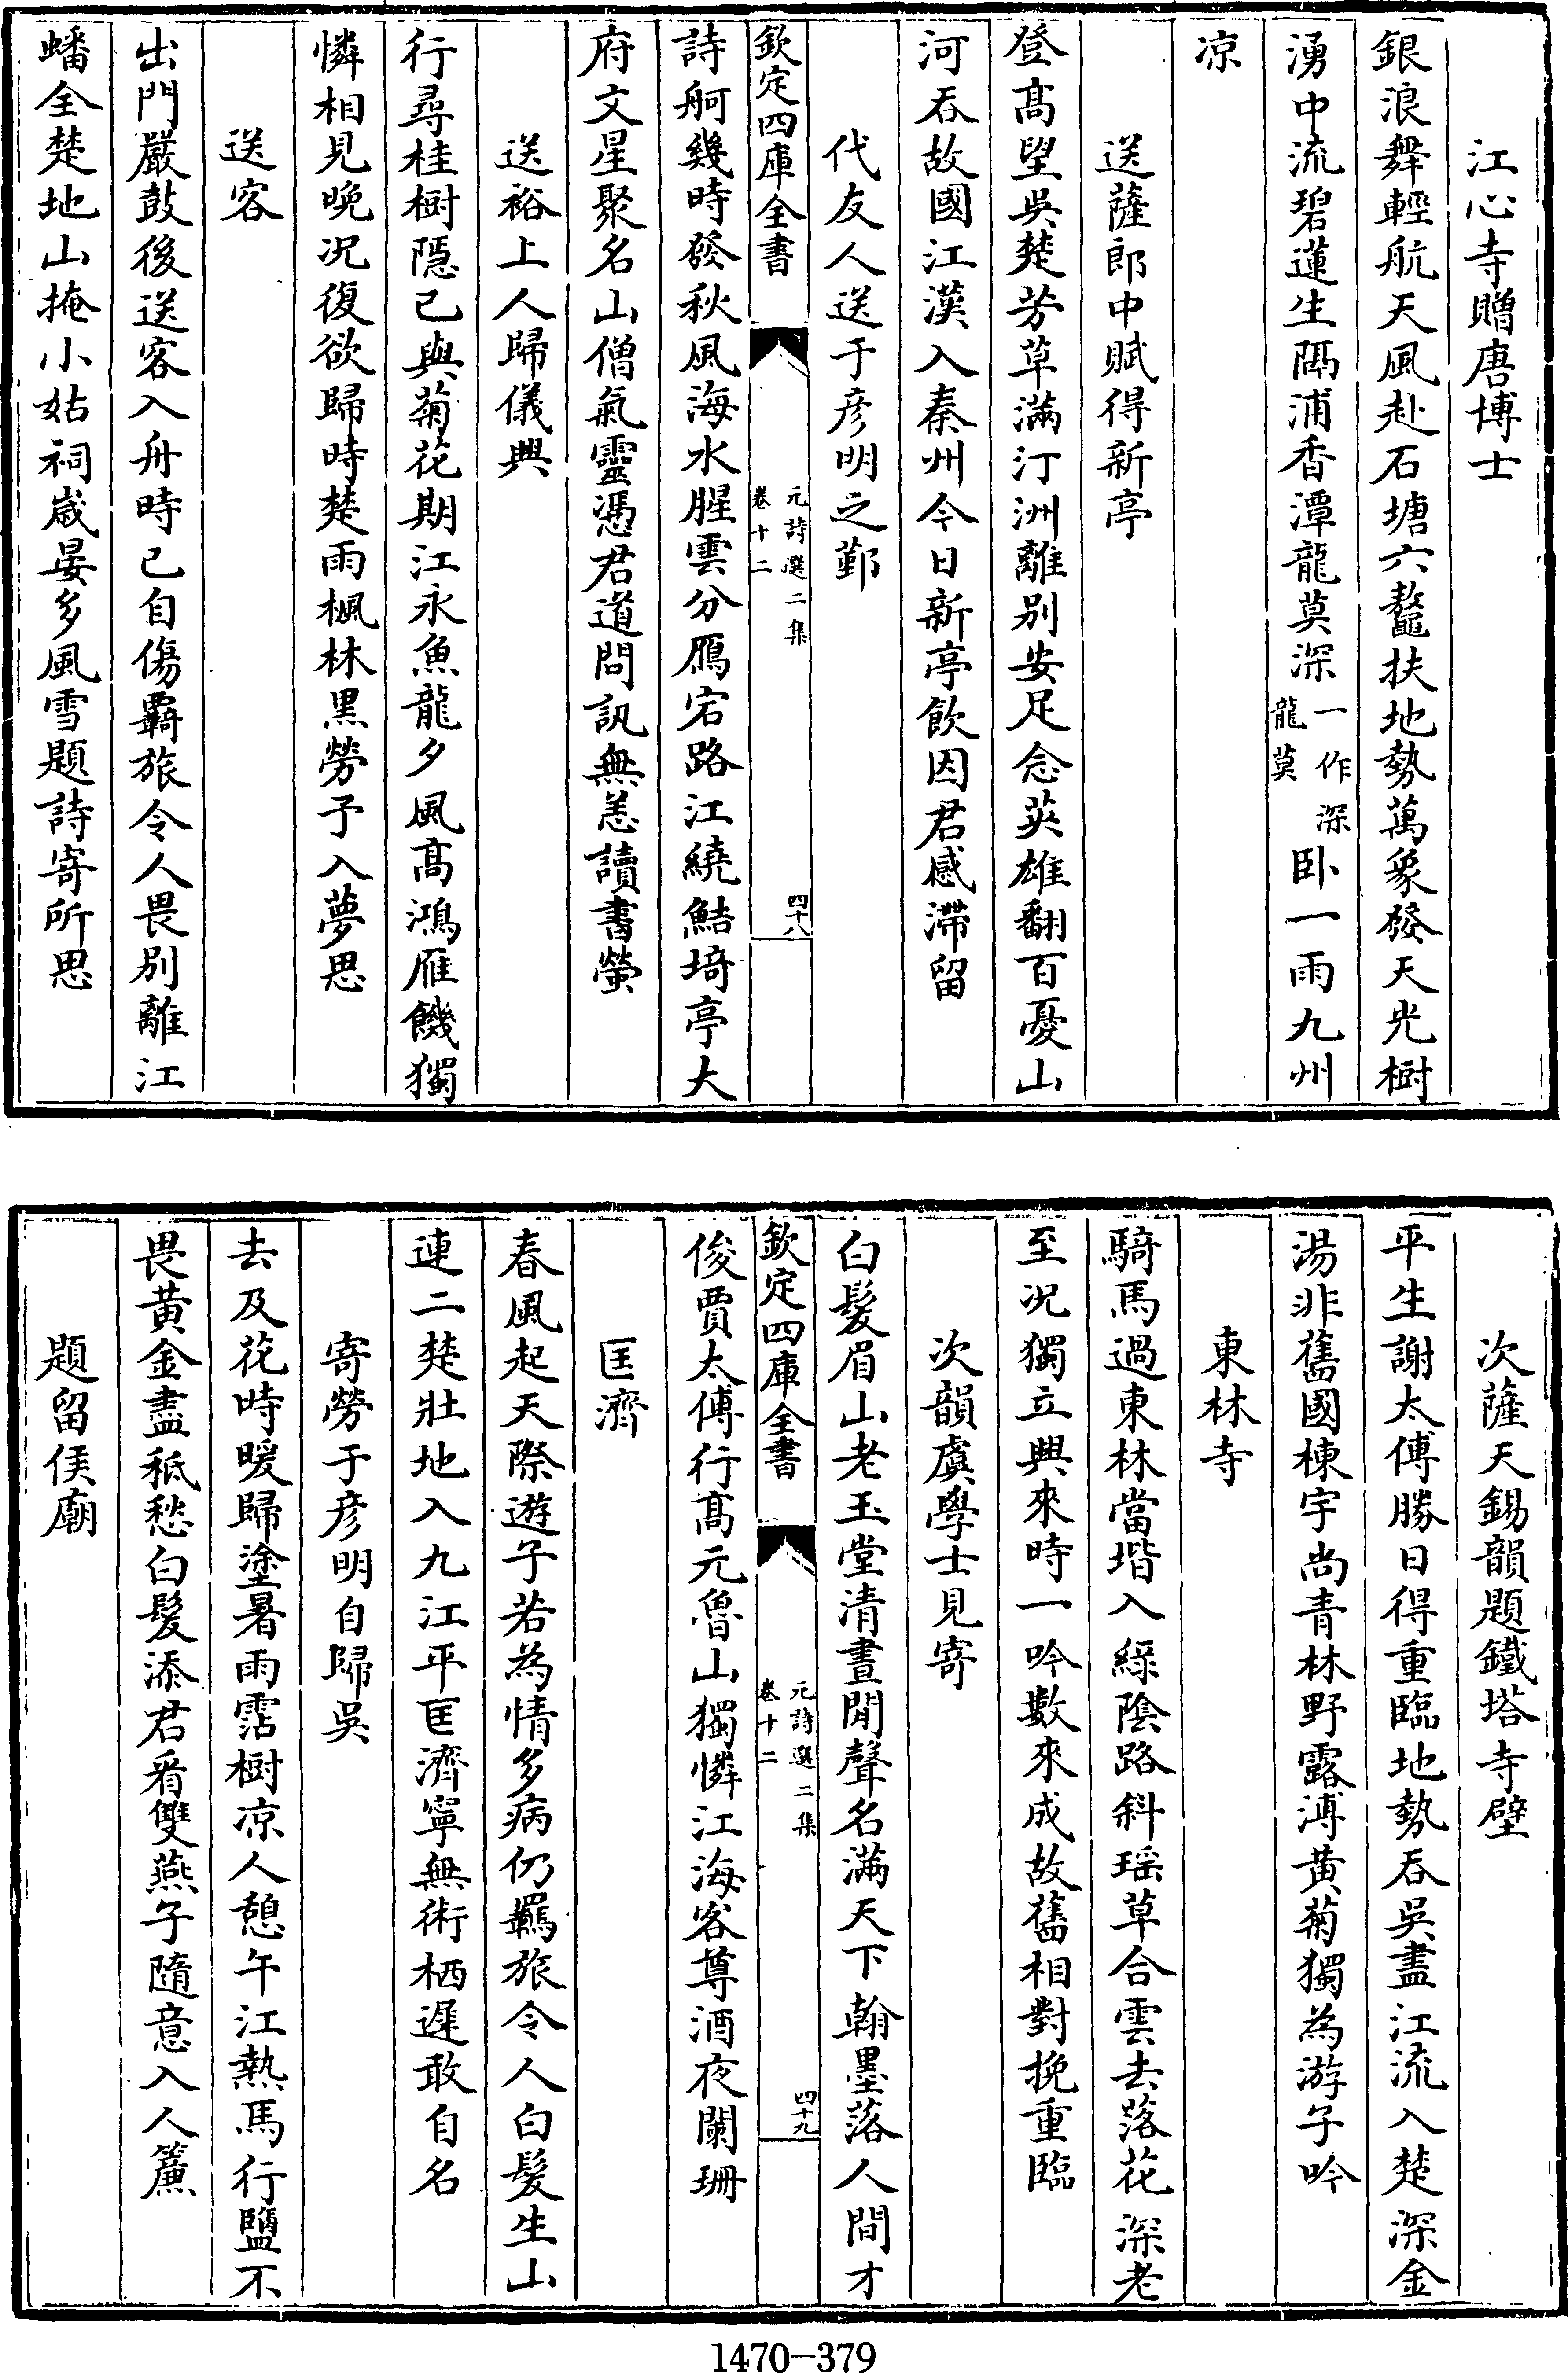 江心寺贈唐博士
銀浪舞輕航天風赴石塘六鼇扶地勢萬象發天光樹
湧中流碧蓮生隔浦香潭龍莫深一作深龍莫卧一雨九州
凉
送薩郎中賦得新亭
登髙望吳楚芳草滿汀洲離別安足念英雄翻百憂山
河吞故國江漢入秦州今日新亭飲因君感滯留
代友人送于彦明之鄞
欽定四庫全書
元詩選二集
卷十二
四十八
詩舸幾時發秋風海水腥雲分鴈宕路江繞鮚埼亭大
府文星聚名山僧氣靈憑君道問訊無恙讀書螢
送裕上人歸儀興
行尋桂樹隱已與菊花期江永魚龍夕風髙鴻雁饑獨
憐相見晚况復欲歸時楚雨楓林黒勞予入夢思
送客
出門嚴鼓後送客入舟時已自傷羇旅令人畏别離江
蟠全楚地山掩小姑祠嵗晏多風雪題詩寄所思
次薩天錫韻題鐵塔寺壁
平生謝太傅勝日得重臨地勢吞吳盡江流入楚深金
湯非舊國棟宇尚青林野露溥黄菊獨為游子吟
東林寺
騎馬過東林當堦入綠陰路斜瑶草合雲去落花深老
至况獨立興來時一吟數來成故舊相對挽重臨
次韻虞學士見寄
白髮眉山老玉堂清晝閒聲名滿天下翰墨落人間才
欽定四庫全書
元詩選二集
卷十二
四十九
俊賈太傅行髙元魯山獨憐江海客尊酒夜闌珊
匡濟
春風起天際遊子若為情多病仍羈旅令人白髮生山
連二楚壯地入九江平匡濟寧無術栖遲敢自名
寄勞于彦明自歸吳
去及花時暖歸塗暑雨霑樹凉人憩午江熱馬行鹽不
畏黄金盡秪愁白髮添君看雙燕子隨意入人簾
題留侯廟
1470—379